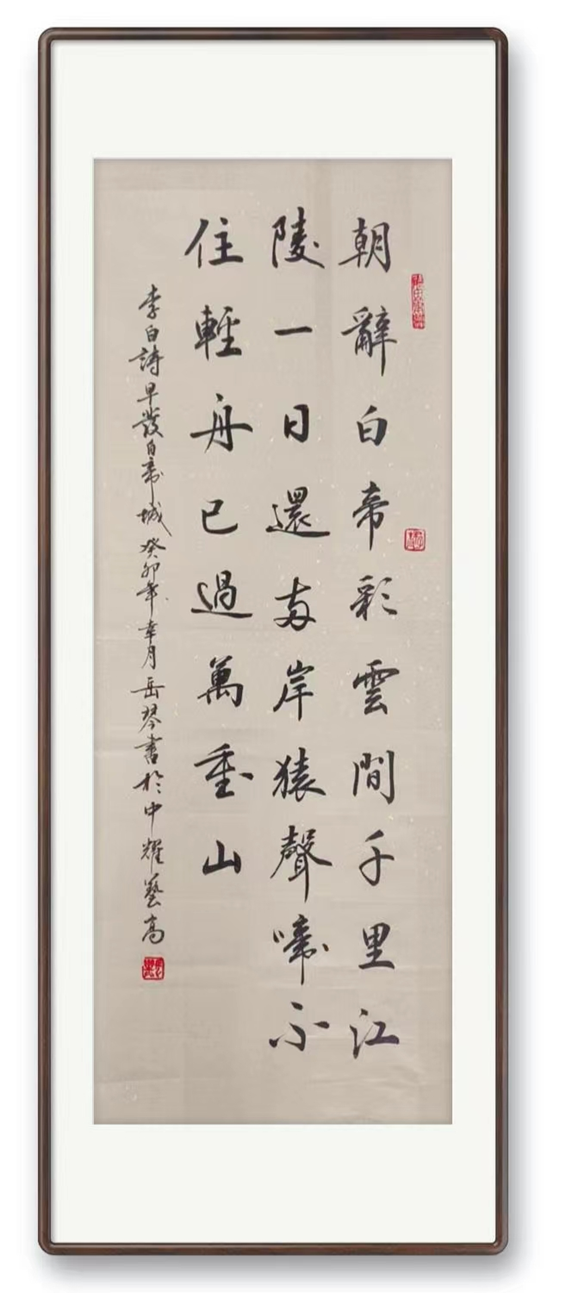 朝辭白帝彩雲間千里江
陵一日還两岸猿聲啼不
住輕舟已過萬重山
李白詩早發白帝城癸卯年幸月岳琴書於中耀藝高